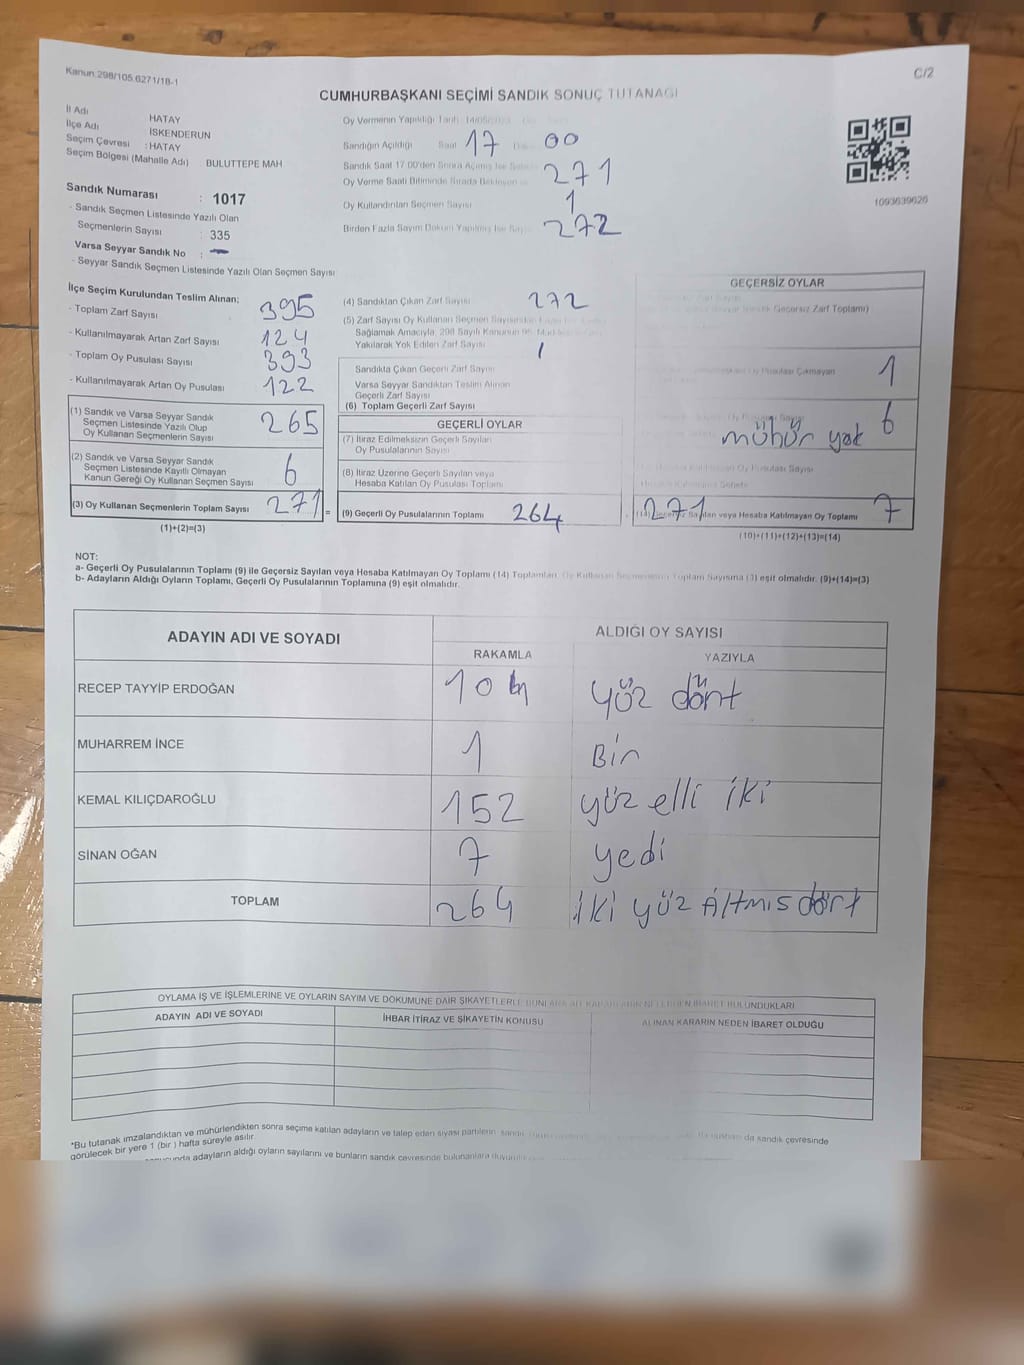 Kanun:298/105.6271/18-1
C/2
CUMHURBAŞKANI SEÇİMİ SANDIK SONUÇ TUTANAĞI
İl Adı HATAY
İlçe Adı İSKENDERUN
Seçim Çevresi : HATAY
Seçim Bölgesi (Mahalle Adı) BULUTTEPE MAH
Sandık Numarası : 1017
- Sandık Seçmen Listesinde Yazılı Olan
Seçmenlerin Sayısı : 335
Varsa Seyyar Sandık No : —
- Seyyar Sandık Seçmen Listesinde Yazılı Olan Seçmen Sayısı
Oy Vermenin Yapıldığı Tarih
Sandığın Açıldığı Saat 17 00
Sandık Saat 17.00'den Sonra Açılmış İse
271
Oy Verme Saati Bitiminde Sırada Bekleyen
Oy Kullandırılan Seçmen Sayısı 1
Birden Fazla Sayım Döküm Yapılmış İse 272
1093639626
İlçe Seçim Kurulundan Teslim Alınan;
- Toplam Zarf Sayısı 395
- Kullanılmayarak Artan Zarf Sayısı 124
- Toplam Oy Pusulası Sayısı 393
- Kullanılmayarak Artan Oy Pusulası 122
(1) Sandık ve Varsa Seyyar Sandık
Seçmen Listesinde Yazılı Olup
Oy Kullanan Seçmenlerin Sayısı 265
(2) Sandık ve Varsa Seyyar Sandık
Seçmen Listesinde Kayıtlı Olmayan
Kanun Gereği Oy Kullanan Seçmen Sayısı 6
(3) Oy Kullanan Seçmenlerin Toplam Sayısı 271 =
(1)+(2)=(3)
(4) Sandıktan Çıkan Zarf Sayısı 272
(5) Zarf Sayısı Oy Kullanan Seçmen Sayısından
Sağlamak Amacıyla, 298 Sayılı Kanunun 98.
Yakılarak Yok Edilen Zarf Sayısı 1
Sandıkta Çıkan Geçerli Zarf Sayısı
Varsa Seyyar Sandıktan Teslim Alınan
Geçerli Zarf Sayısı
(6) Toplam Geçerli Zarf Sayısı
GEÇERLİ OYLAR
(7) İtiraz Edilmeksizin Geçerli Sayılan
Oy Pusulalarının Sayısı
(8) İtiraz Üzerine Geçerli Sayılan veya
Hesaba Katılan Oy Pusulası Toplamı
(9) Geçerli Oy Pusulalarının Toplamı 264
GEÇERSİZ OYLAR
Geçersiz Zarf Toplamı)
Oy Pusulası Çıkmayan 1
mühür yok 6
Oy Pusulası Sayısı
271 (14) Geçersiz Sayılan veya Hesaba Katılmayan Oy Toplamı 7
(10)+(11)+(12)+(13)=(14)
NOT:
a- Geçerli Oy Pusulalarının Toplamı (9) ile Geçersiz Sayılan veya Hesaba Katılmayan Oy Toplamı (14) Toplamları, Oy Kullanan Seçmenlerin Toplam Sayısına (3) eşit olmalıdır. (9)+(14)=(3)
b- Adayların Aldığı Oyların Toplamı, Geçerli Oy Pusulalarının Toplamına (9) eşit olmalıdır.
ADAYIN ADI VE SOYADI
ALDIĞI OY SAYISI
RAKAMLA YAZIYLA
RECEP TAYYİP ERDOĞAN 104 yüz dört
MUHARREM İNCE 1 Bir
KEMAL KILIÇDAROĞLU 152 yüz elli iki
SİNAN OĞAN 7 yedi
TOPLAM 264 iki yüz Altmış dört
OYLAMA İŞ VE İŞLEMLERİNE VE OYLARIN SAYIM VE DÖKÜMÜNE DAİR ŞİKAYETLERLE BUNLARA AİT KARARLARIN NELERDEN İBARET BULUNDUKLARI
ADAYIN ADI VE SOYADI İHBAR İTİRAZ VE ŞİKAYETİN KONUSU ALINAN KARARIN NEDEN İBARET OLDUĞU
*Bu tutanak imzalandıktan ve mühürlendikten sonra seçime katılan adayların ve talep eden siyasi partilerin da sandık çevresinde
görülecek bir yere 1 (bir) hafta süreyle asılır.
adayların aldığı oyların sayılarını ve bunların sandık çevresinde bulunanlara